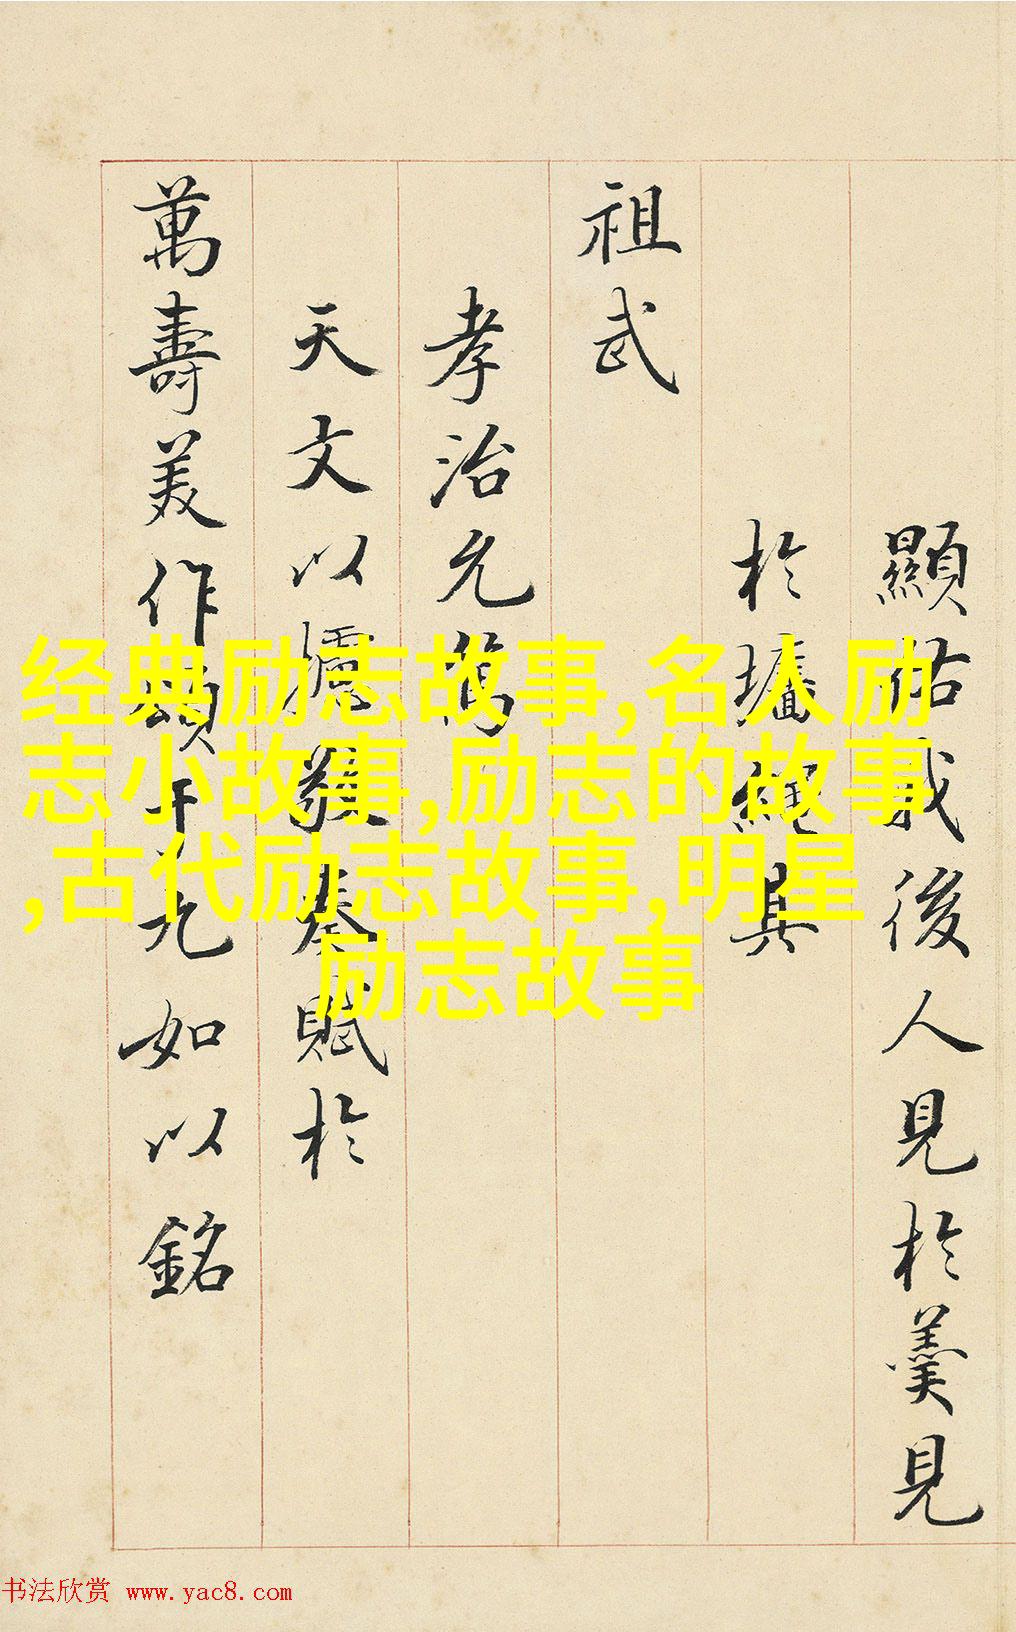 顯佑我後人見於羹見
於墻繩其
祖武
孝治允
天文以攄敬奏賦於
萬壽美作頌于九如以銘
经典励志故事,名人励
志小故事,励志的故事
,古代励志故事,明星
励志故事
书法欣赏 www.yac8.com